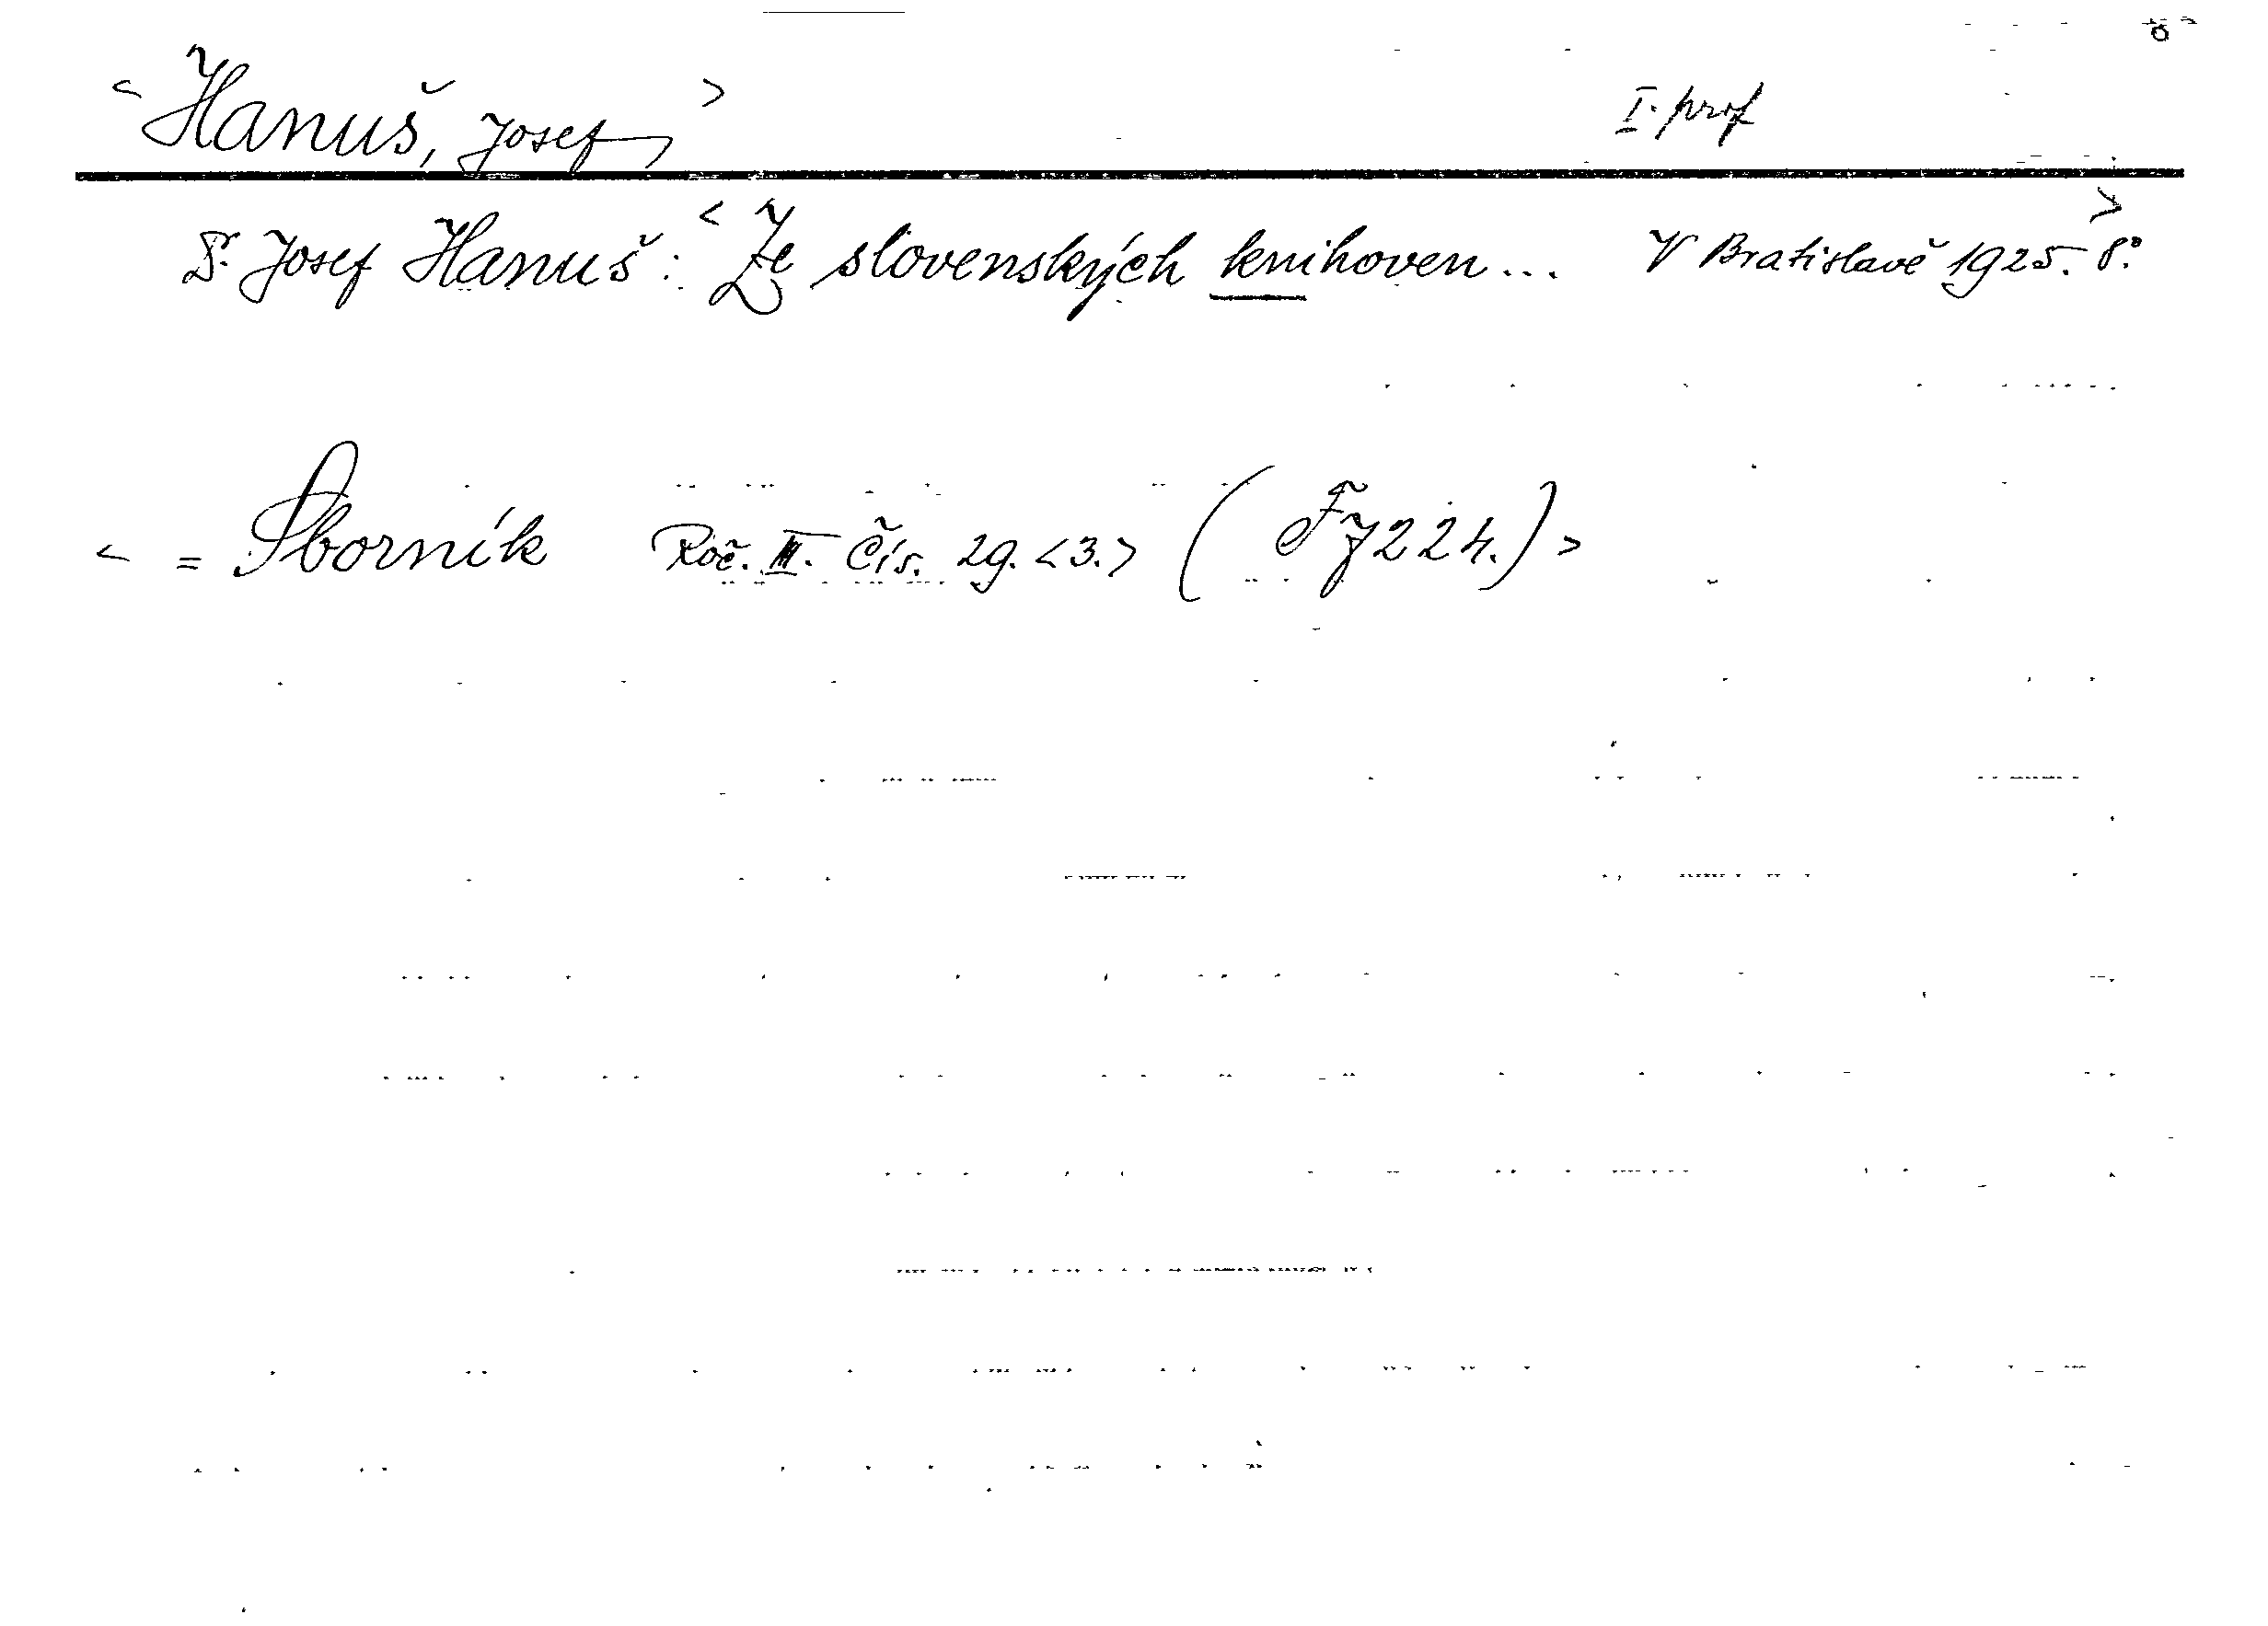 < Hanuš, Josef, > I. prof
Dr. Josef Hanuš: < Ze slovenských knihoven... V Bratislavě 1925. 8°. >
< = Sborník Roč. III. Čís. 29. <3.> (Fy 224.) >